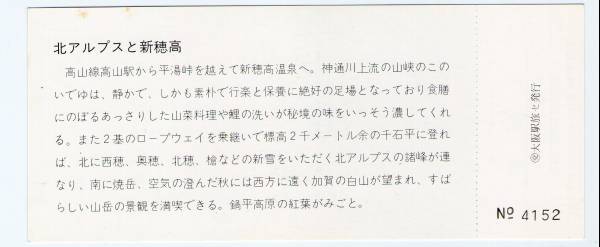 北アルプスと新穂高
高山線高山駅から平湯峠を越えて新穂高温泉へ。神通川上流の山峡のこの
いでゆは、静かで、しかも素朴で行楽と保養に絶好の足場となっており食膳
にのぼるあっさりした山菜料理や鯉の洗いが秘境の味をいっそう濃してくれ
る。また2基のロープウェイを乗継いで標高2千メートル余の千石平に登れ
ば、北に西穂、奥穂、北穂、槍などの新雪をいただく北アルプスの諸峰が連
なり、南に焼岳、空気の澄んだ秋には西方に遠く加賀の白山が望まれ、すば
らしい山岳の景観を満喫できる。鍋平高原の紅葉がみごと。
大阪駅旅セ発行
№ 4152